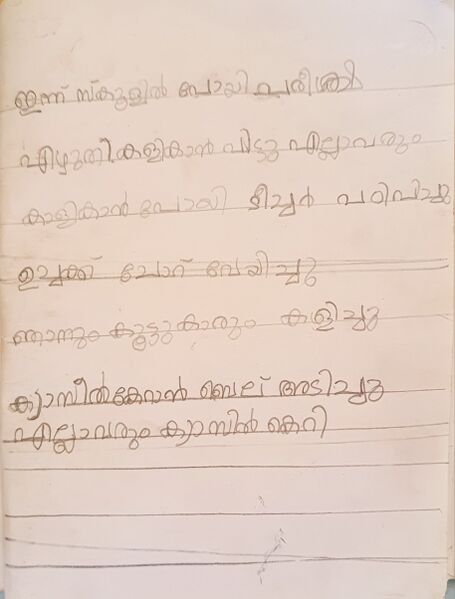 ഇന്ന് സ്കൂളിൽ പോയി പരീക്ഷ
എഴുതി. കളികാൻ വിട്ടു എല്ലാവരും
കാളികാൻ പോയി ടീച്ചർ പഠിപിച്ചു
ഉച്ചക്ക് ചോറ് വേയിച്ചു
ഞാനും കൂട്ടുകാരും കളിച്ചു
ക്യാസീൽകേറാൻ ബെല് അടിച്ചു
എല്ലാവരും ക്യാസിൽ കെറി